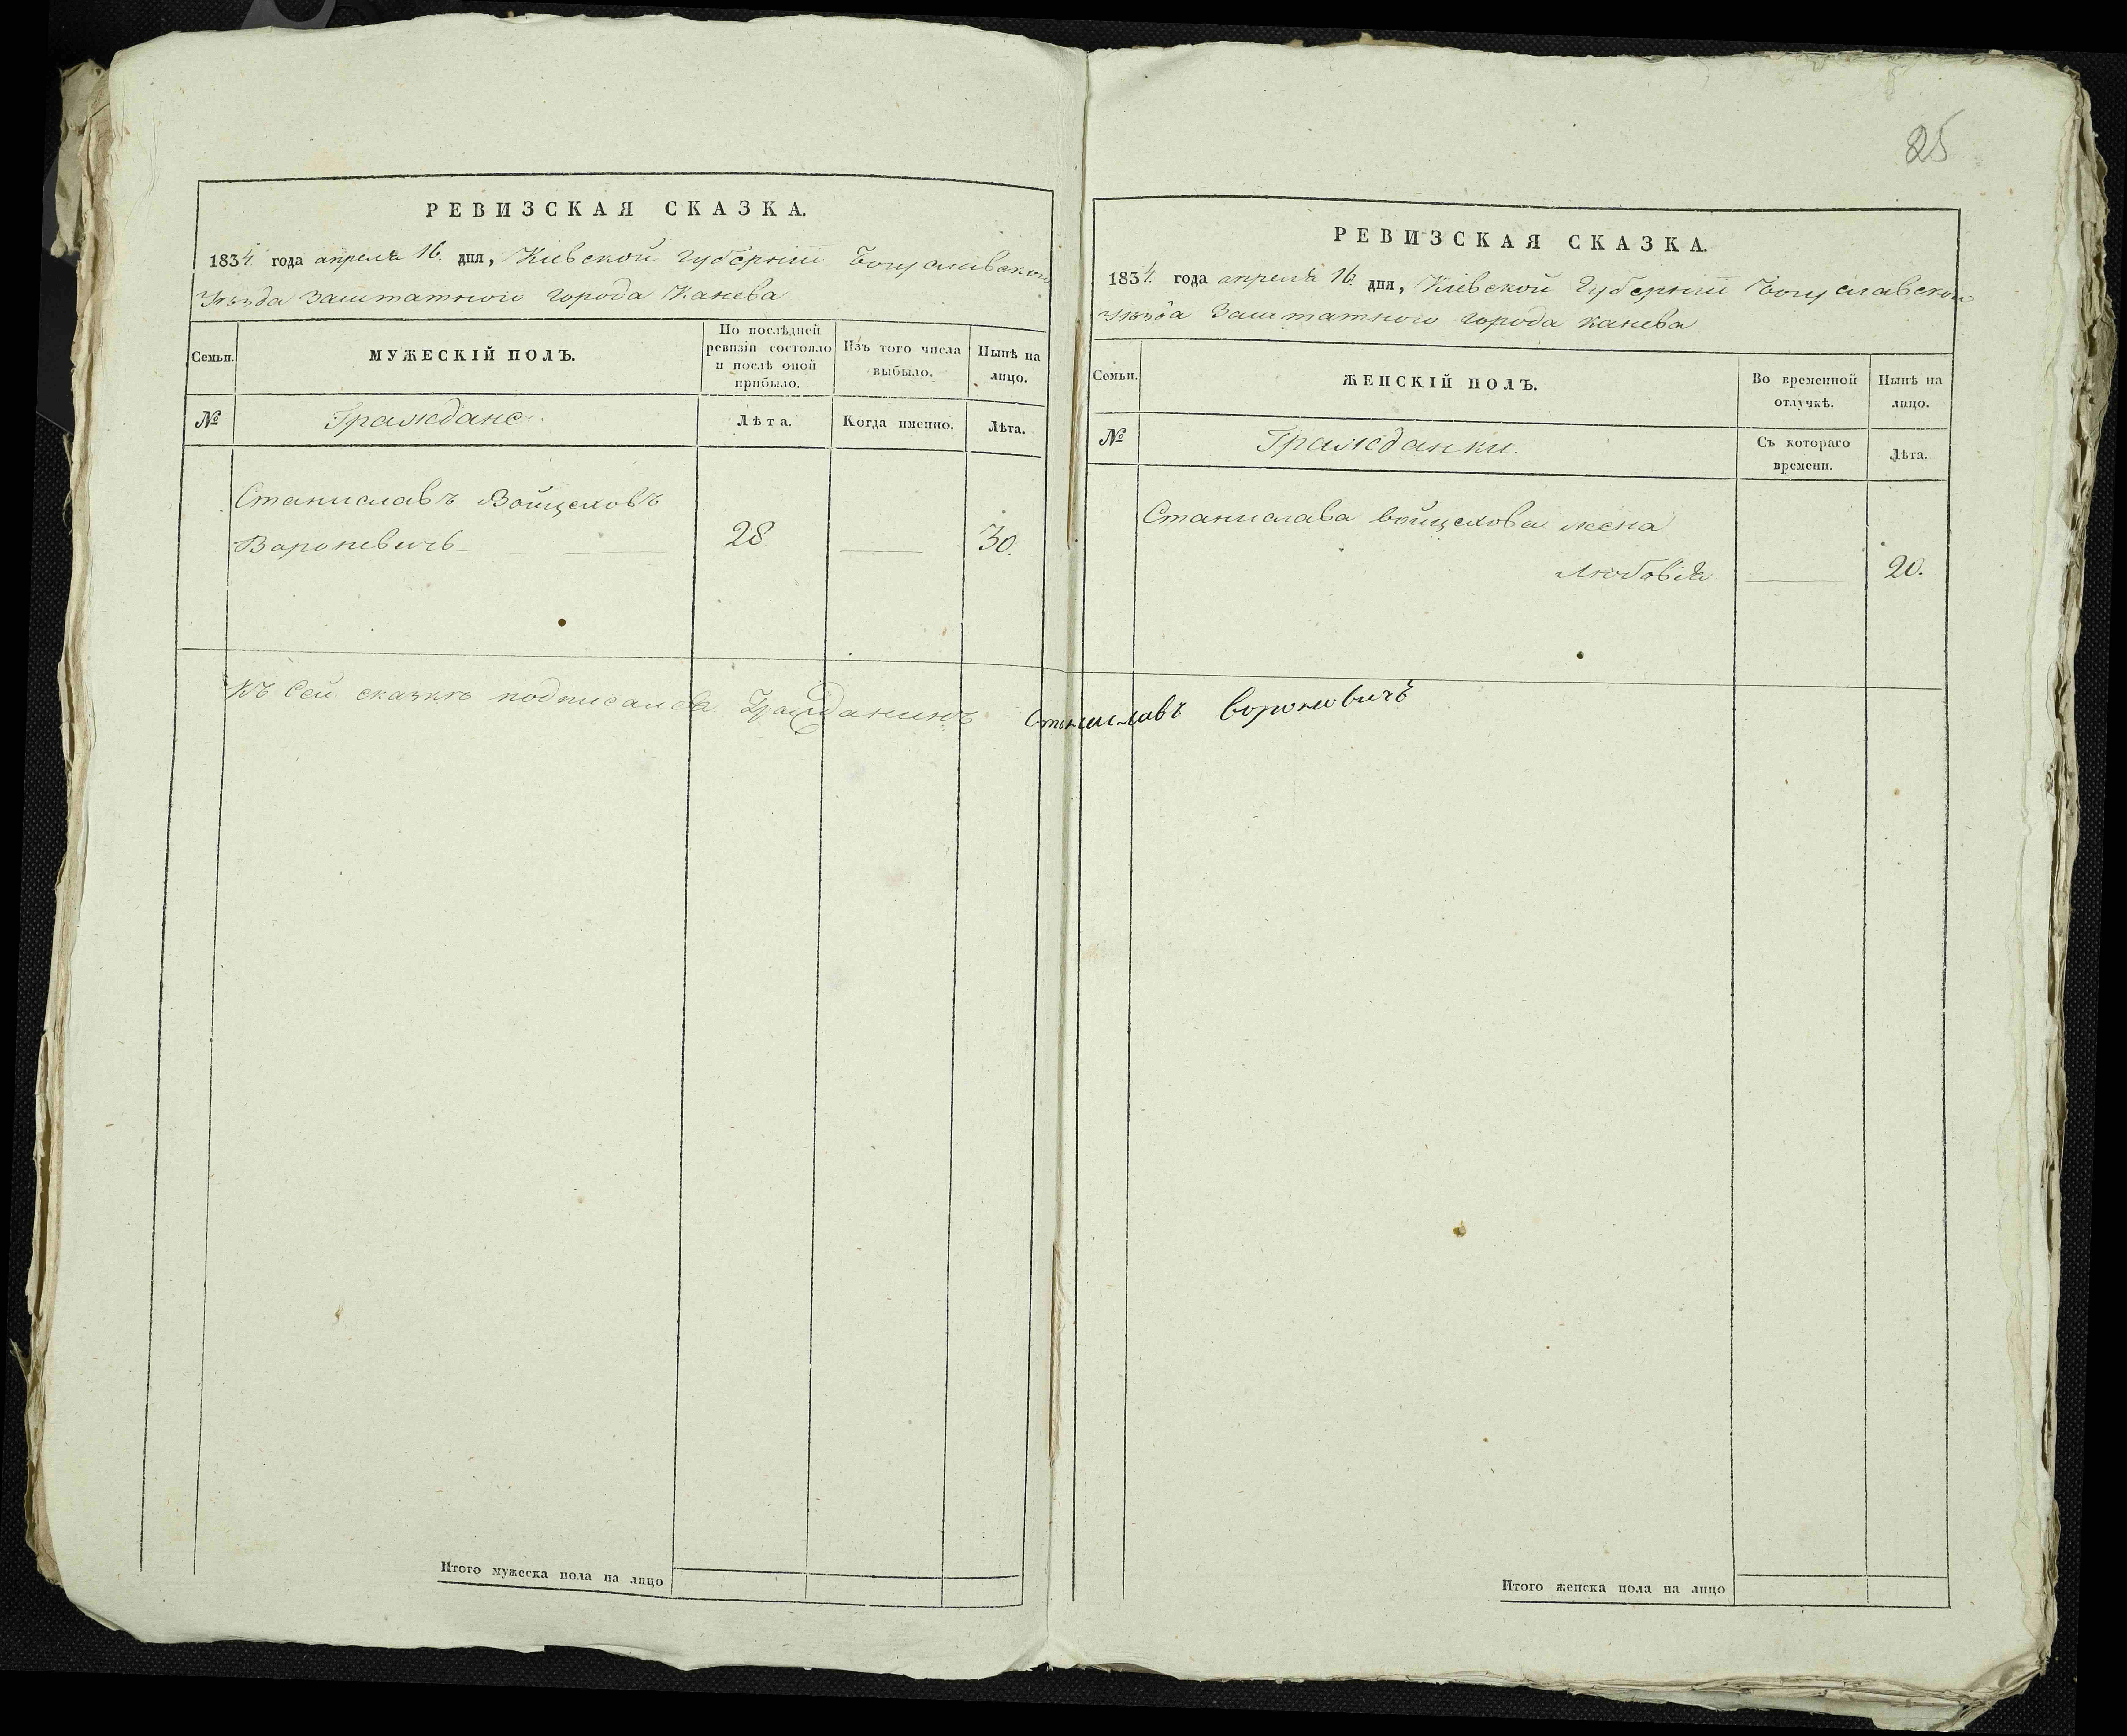 25
РЕВИЗСКАЯ СКАЗКА.
1834. года апреля 16. дня, Кіевской Губерніи Богуславского
Уѣзда Заштатного города Канева
Семьи.
МУЖЕСКІЙ ПОЛЪ.
По послѣдней ревизіи состояло и послѣ оной прибыло.
Изъ того числа выбыло.
Нынѣ на лицо.
№
Граждане.
Лѣта.
Когда именно.
Лѣта.
Станиславъ Войцеховъ
Вороневичь 28. 30.
Къ сей сказкѣ подписался Гражданинъ Станиславъ Вороновичъ
Итого мужеска пола на лицо
РЕВИЗСКАЯ СКАЗКА.
1834. года апреля 16. дня, Кіевской Губерніи Богуславского
Уѣзда Заштатного города Канева
Семьи.
ЖЕНСКІЙ ПОЛЪ.
Во временной отлучкѣ.
Нынѣ на лицо.
№
Гражданки.
Съ котораго времени.
Лѣта.
Станислава Войцехова жена
Любовія 20.
Итого женска пола на лицо